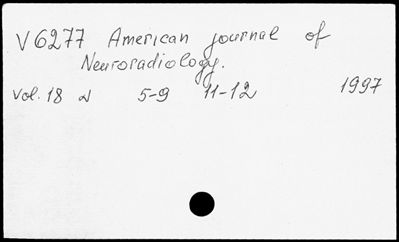 V 6277 American journal of
Neuroradiology.
Vol. 18 N 5-9 11-12 1997